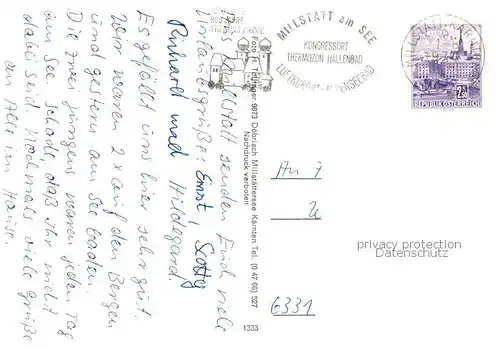 Aus Millstatt senden Euch viele
Urlaubsgrüße: Ernst, Scotty
Reinhard und Hildegard.
Es gefällt uns hier sehr gut.
Wir waren 2x auf den Bergen
und gestern am See baden.
Die zwei Jungens waren jeden Tag
am See. Schade, daß Ihr nicht
dabei seid. Nochmals viele Grüße
an Alle im Hause.
MILLSTATT am SEE
KONGRESSORT
THERMOZON HALLENBAD
LUFTKURORT - ALPENSEEBAD
2 S
REPUBLIK ÖSTERREICH
Foto H. Pirchner 9873 Döbriach Millstättersee Kärnten Tel. (0 47 66) 527
Nachdruck verboten
1333
An F
6331
privacy protection
Datenschutz